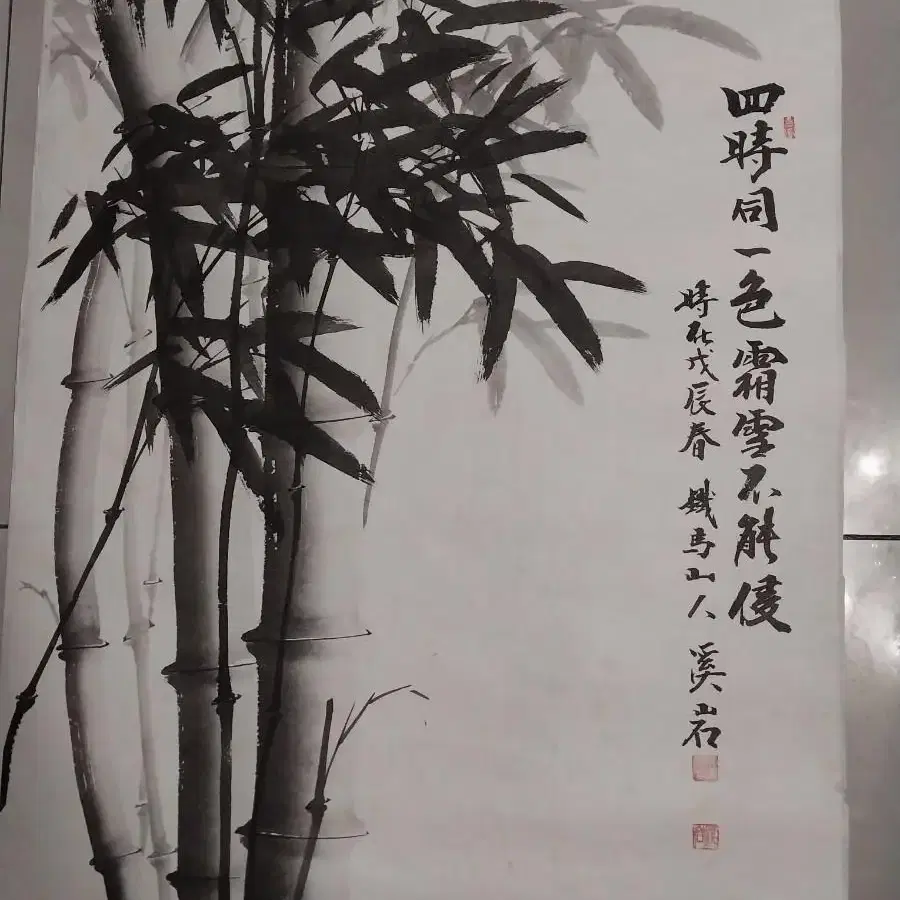 四時同一色霜雪不能侵
時在戊辰春 鐵馬山人 溪岩